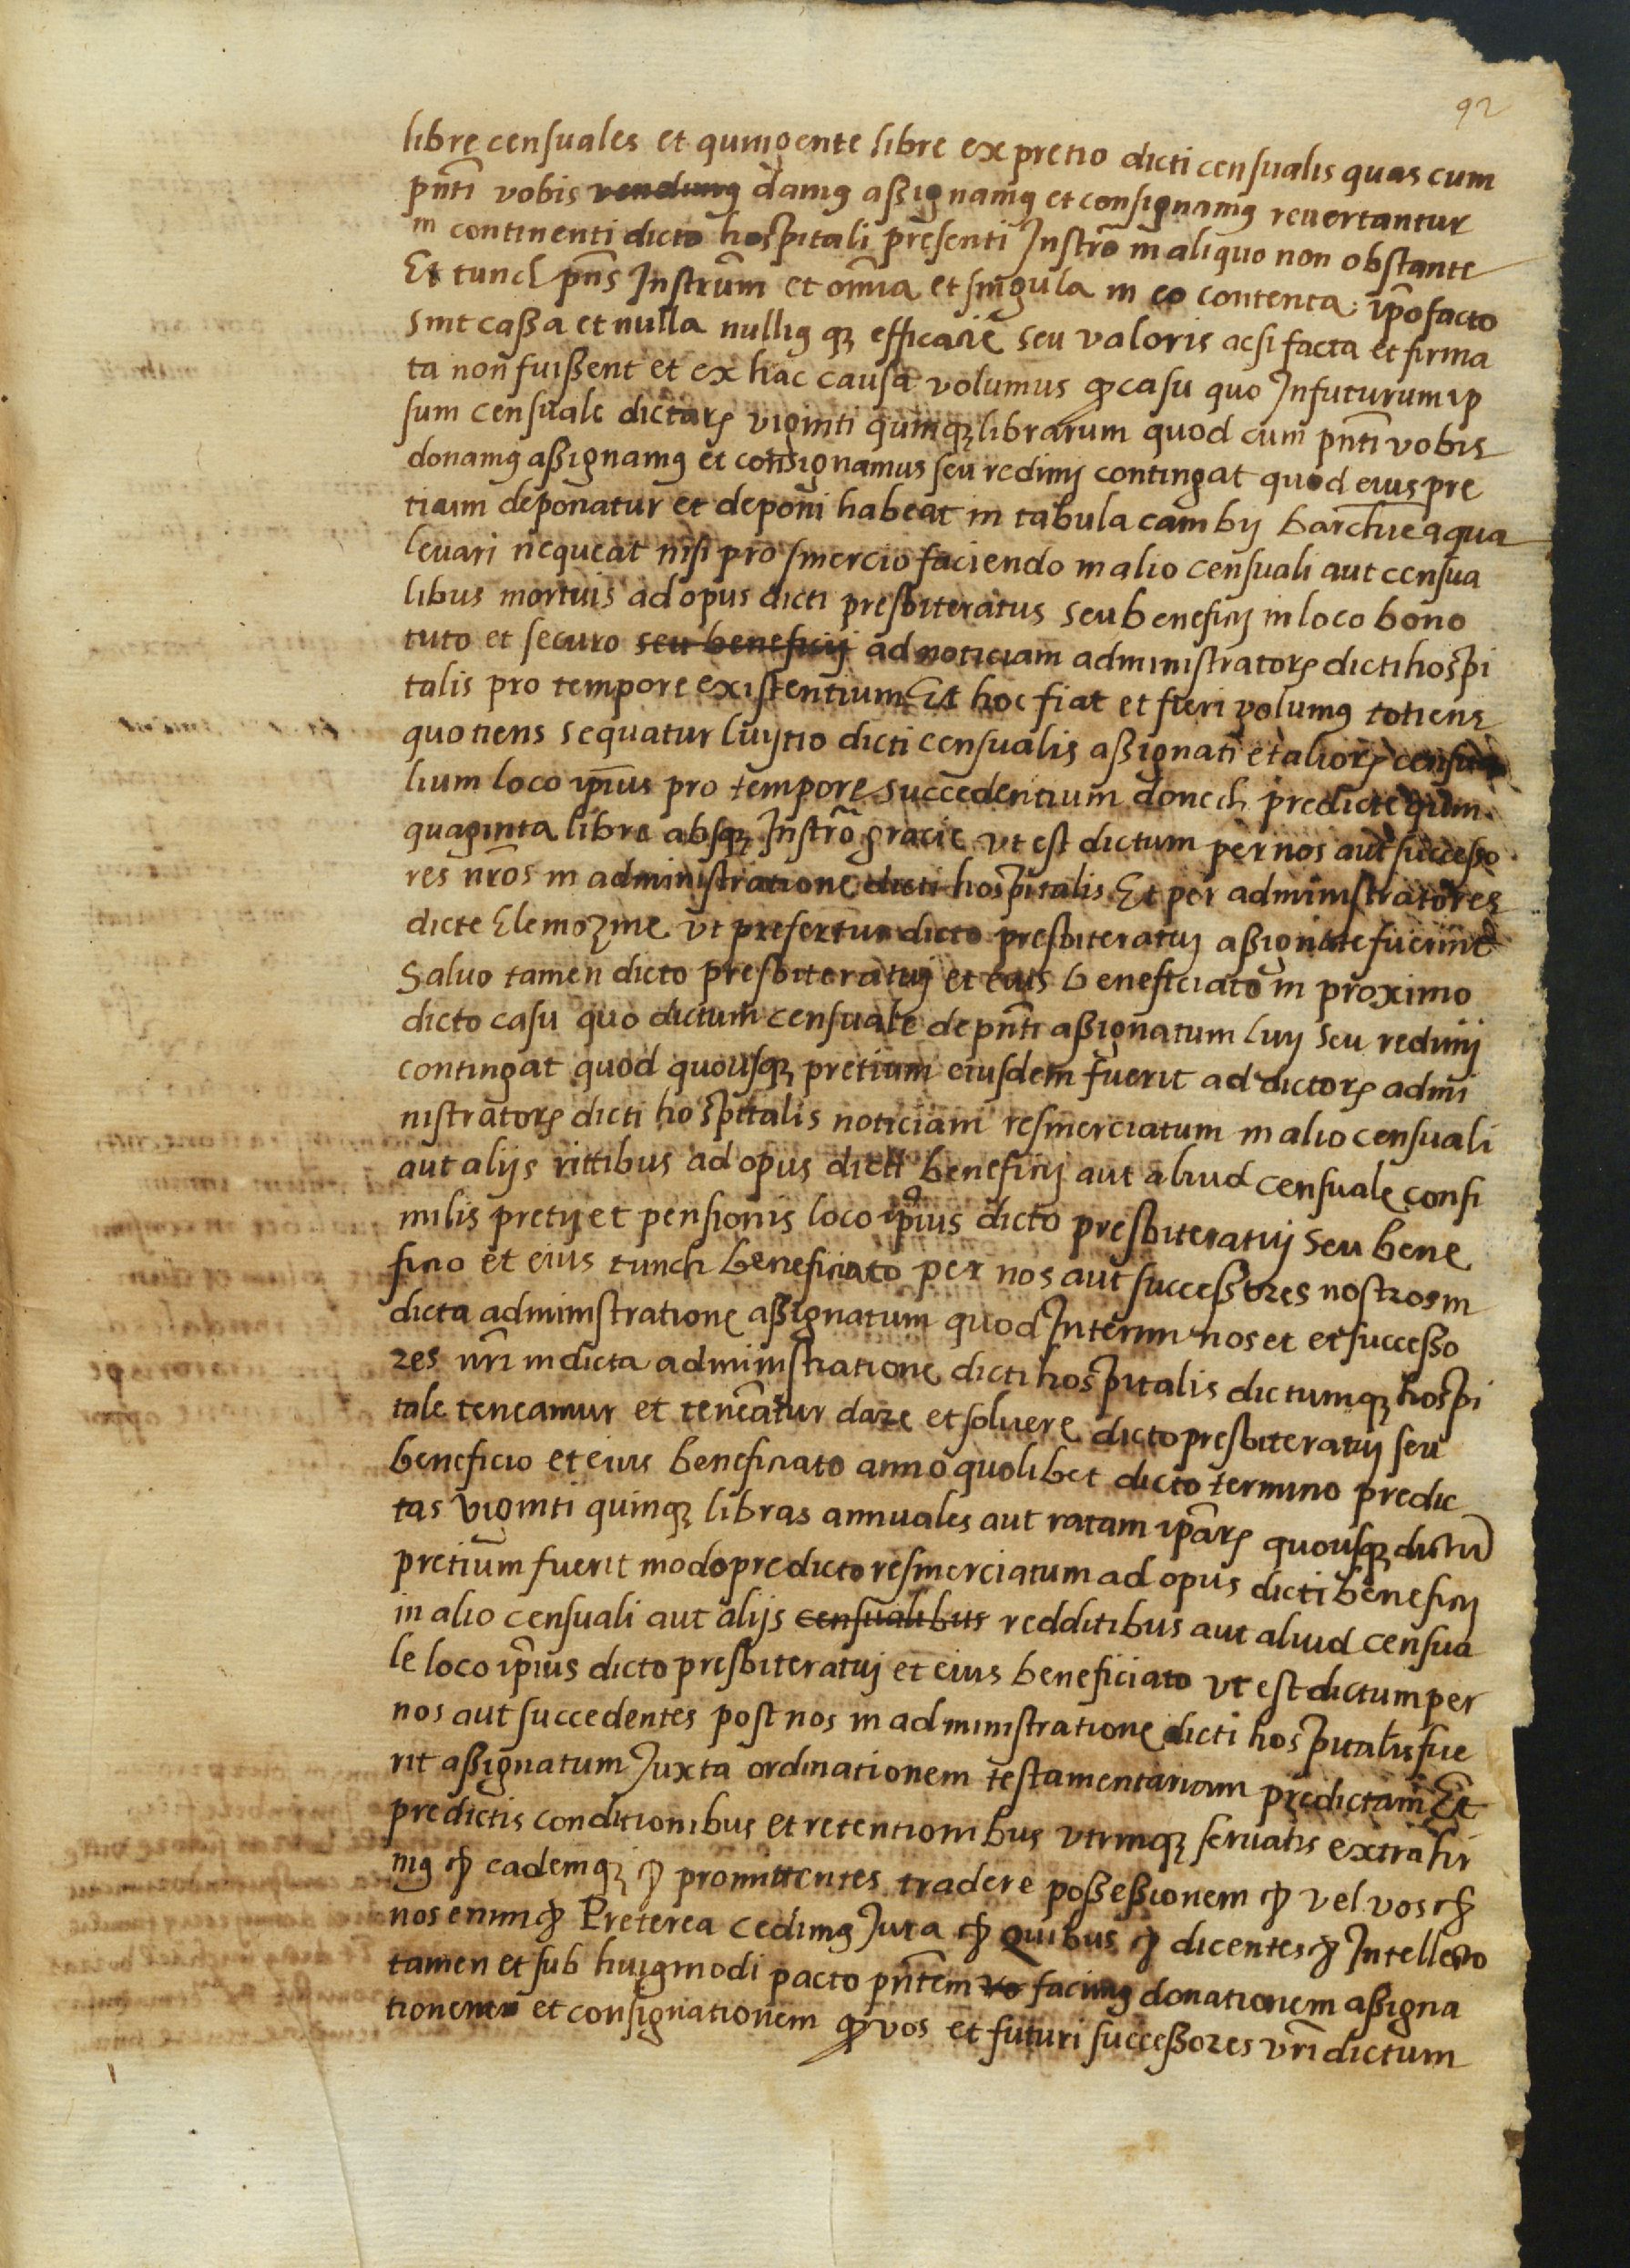 92
libre censuales et quingente libre ex pretio dicti censualis quas cum
pñti vobis vendimꝰ damꝰ assignamꝰ et consignamꝰ reuertantur
in continenti dicto hospitali presenti Instrõ in aliquo non obstante
Et tunch pñs Instrum̃ et om̃ia et singula in eo contenta ip̃o facto
sint cassa et nulla nulliꝰ qꝫ efficacie seu valoris acsi facta et firma
ta non fuissent et ex hac causa volumus ꝙ casu quo Infuturum ip
sum censuale dictarꝝ viginti quinqꝫ librarum quod cum pñti vobis
donamꝰ assignamꝰ et consignamus seu redimj contingat quod eius pre
tium deponatur et deponi habeat in tabula cambij barchne a qua
leuari nequeat nisi pro smercio faciendo in alio censuali aut censua
libus mortuis ad opus dicti presbiteratus seu beneficij in loco bono
tuto et securo seu beneficij ad noticiam administratorꝝ dicti hospi
talis pro tempore existentium Et hoc fiat et fieri volumꝰ totiens
quotiens sequatur luytio dicti censualis assignati et aliorꝝ censua
lium loco ip̃ius pro tempore succedentium donech predicte quin
quaginta libre absqꝫ Instrõ gracie vt est dictum per nos aut successo
res nr̃os in administratione dicti hospitalis Et per administratores
dicte Elemozine vt prefertur dicto presbiteratuj assignate fuerint
Saluo tamen dicto presbiteratuj et eius beneficiato in proximo
dicto casu quo dictum censuale de pñti assignatum luy seu redimj
contingat quod quousqꝫ pretium eiusdem fuerit ad dictorꝝ admi
nistratorꝝ dicti hospitalis noticiam resmerciatum in alio censuali
aut alijs rittibus ad opus dicti beneficij aut aliud censuale consi
milis pretij et pensionis loco ip̃ius dicto presbiteratuj seu bene
ficio et eius tunch beneficiato per nos aut successores nostros in
dicta administratione assignatum quod Interim nos et et successo
res nr̃i in dicta administratione dicti hospitalis dictumqꝫ hospi
tale teneamur et teneãtur dare et soluere dicto presbiteratuj seu
beneficio et eius beneficiato anno quolibet dicto termino predic
tas viginti quinqꝫ libras annuales aut ratam ip̃arꝝ quousqꝫ dictũ
pretium fuerit modo predicto resmerciatum ad opus dicti beneficij
in alio censuali aut alijs censualibus redditibus aut aliud censua
le loco ip̃ius dicto presbiteratuj et eius beneficiato vt est dictum per
nos aut succedentes post nos in administratione dicti hospitalis fue
rit assignatum Juxta ordinationem testamentariam predictam Et
predictis conditionibus et retentionibus vtrinqꝫ seruatis extrahi
mꝰ ⁊c̃ eademqꝫ ⁊c̃ promittentes tradere possessionem ⁊c̃ vel vos ⁊c̃
nos enim ⁊c̃ Preterea cedimꝰ Jura ⁊c̃ Quibus ⁊c̃ dicentes ⁊c̃ Intellecto
tamen et sub huiꝰmodi pacto pñtem vo facimꝰ donationem assigna
tionem et consignationem ꝙ vos et futuri successores vr̃i dictum